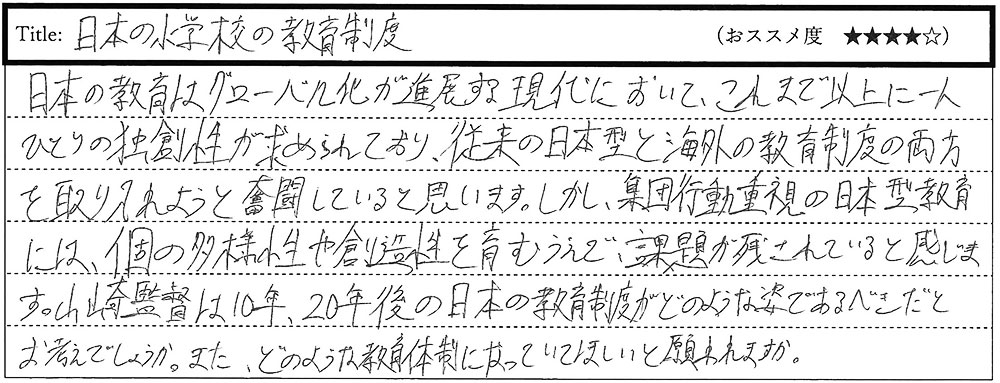 Title: 日本の小学校の教育制度 (おススメ度 ★★★★☆)
日本の教育はグローバル化が進展する現代において、これまで以上に一人
ひとりの独創性が求められており、従来の日本型と海外の教育制度の両方
を取り入れようと奮闘していると思います。しかし、集団行動重視の日本型教育
には、個の多様性や創造性を育むうえで、課題が残されていると感じま
す。山崎監督は10年、20年後の日本の教育制度がどのような姿であるべきだと
お考えでしょうか。また、どのような教育体制になっていてほしいと願われますか。